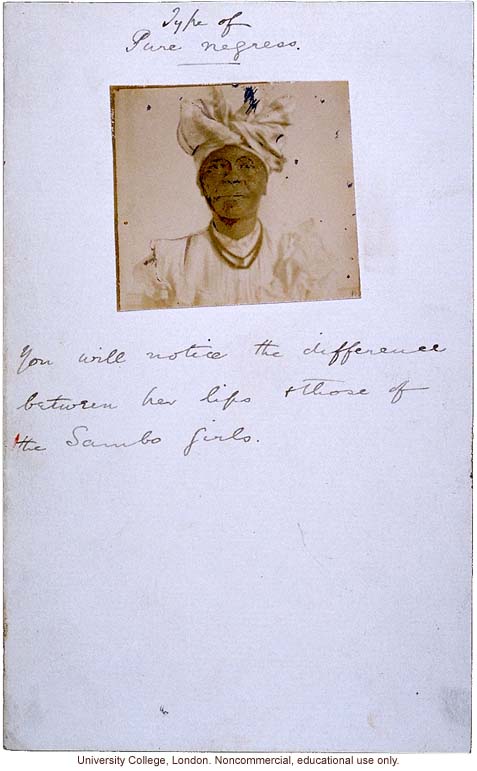 Type of
Pure negress.
You will notice the difference
between her lips & those of
the Sambo Girls.
University College, London. Noncommercial, educational use only.